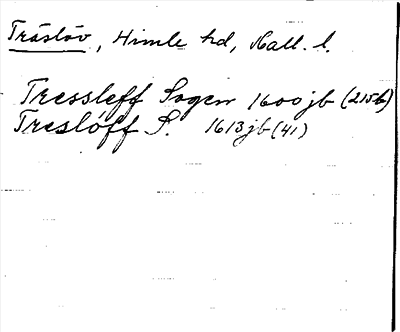 Träslöv, Himle hd, Hall. l.
Tressleff Sogen 1600 jb (215b)
Treslöff S. 1613 jb (41)